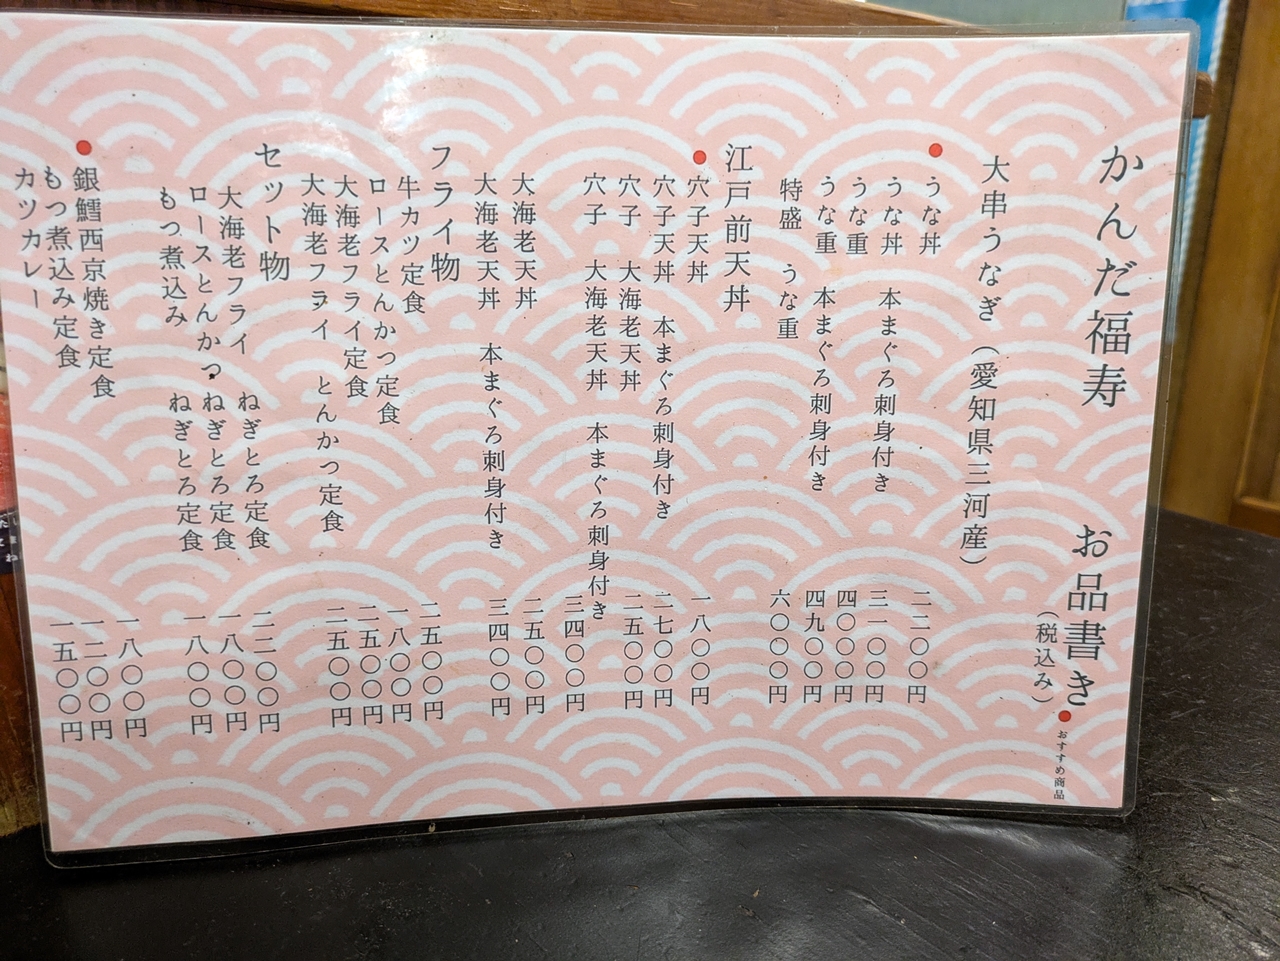 かんだ福寿 お品書き
(税込み)
●おすすめ商品
大串うなぎ（愛知県三河産）
●うな丼 二二〇〇円
うな丼 本まぐろ刺身付き 三一〇〇円
うな重 四〇〇〇円
うな重 本まぐろ刺身付き 四九〇〇円
特盛 うな重 六〇〇〇円
江戸前天丼
●穴子天丼 一八〇〇円
穴子天丼 本まぐろ刺身付き 二七〇〇円
穴子 大海老天丼 二五〇〇円
穴子 大海老天丼 本まぐろ刺身付き 三四〇〇円
大海老天丼 二五〇〇円
大海老天丼 本まぐろ刺身付き 三四〇〇円
フライ物
牛カツ定食 二五〇〇円
ロースとんかつ定食 一八〇〇円
大海老フライ定食 二五〇〇円
大海老フライ とんかつ定食 二五〇〇円
セット物
大海老フライ ねぎとろ定食 二二〇〇円
ロースとんかつ ねぎとろ定食 一八〇〇円
もつ煮込み ねぎとろ定食 一八〇〇円
●銀鱈西京焼き定食 一八〇〇円
もつ煮込み定食 一二〇〇円
カツカレー 一五〇〇円